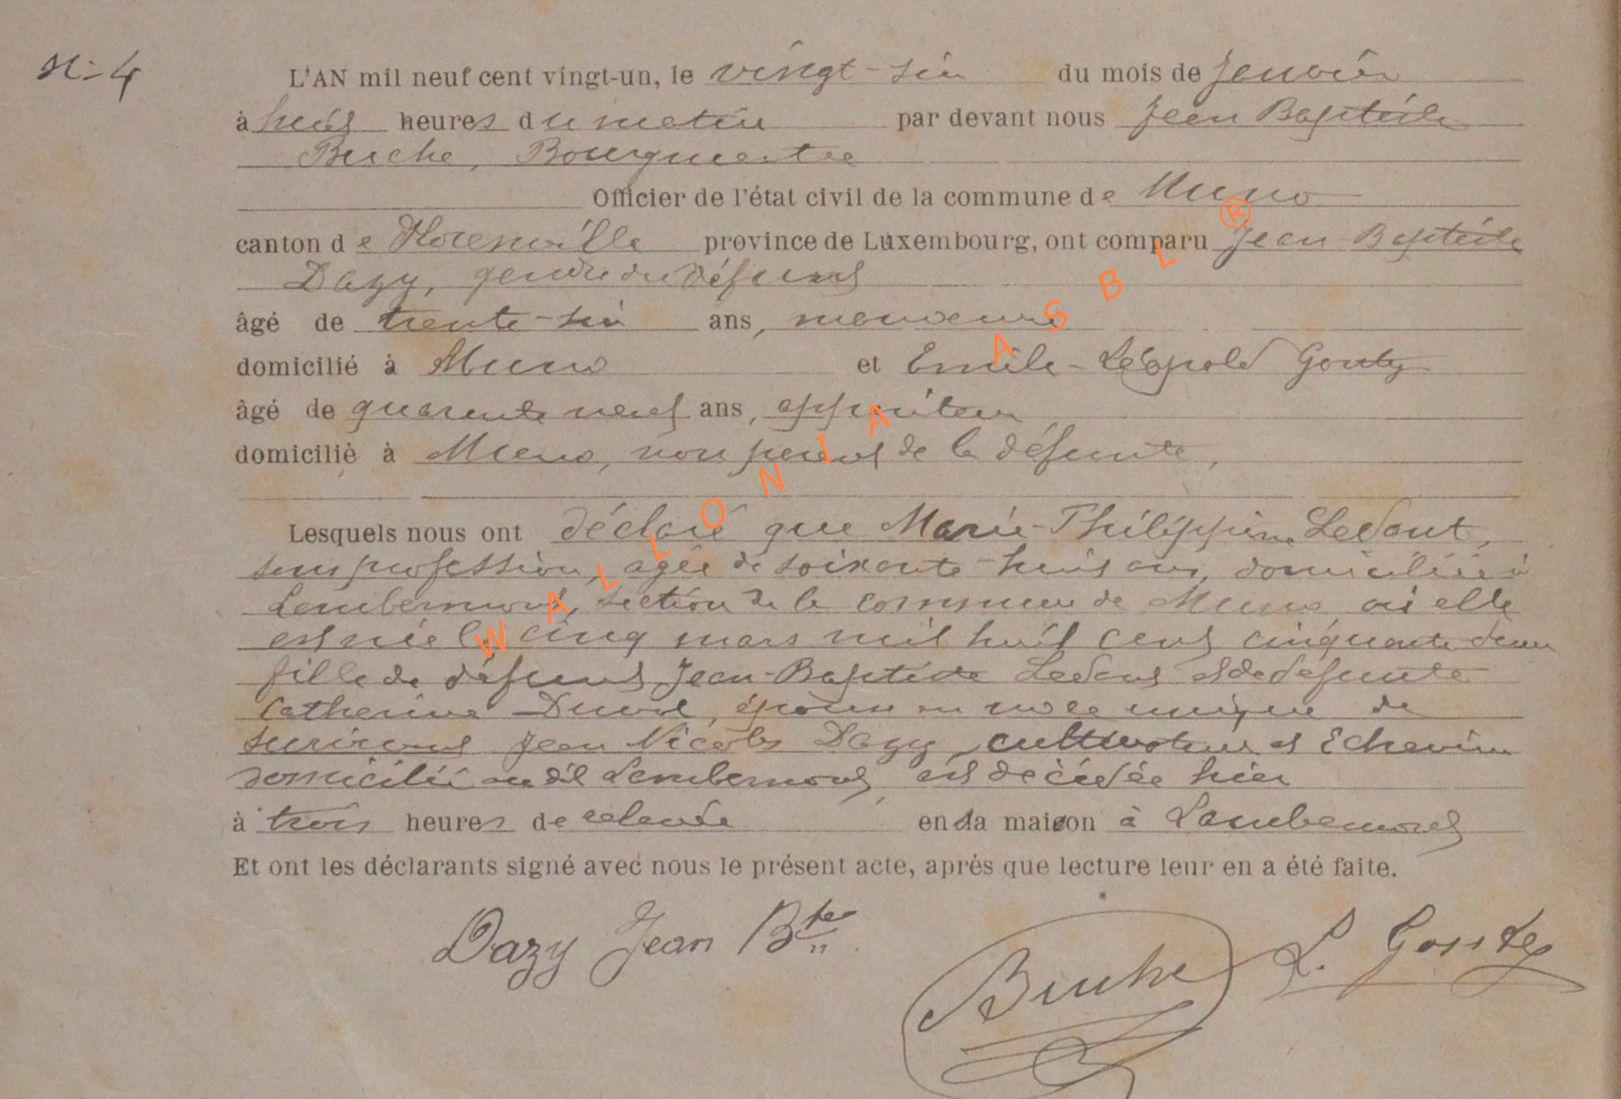 N: 4
L'AN mil neuf cent vingt-un, le vingt-six du mois de Janvier
à huit heures du matin par devant nous Jean Baptiste
Buche, Bourgmestre
Officier de l'état civil de la commune de Muno
canton de Florenville province de Luxembourg, ont comparu Jean-Baptiste
Dazy, gendre du défunt
âgé de trente-six ans,
domicilié à Muno et Emile-Léopold Gonty
âgé de quarante neuf ans, appariteur
domicilié à Muno, non parent de la défunte,
Lesquels nous ont déclaré que Marie-Philippine Ledent,
sans profession, agée de soixante-huit ans, domiciliée à
Lambermont, section de la commune de Muno où elle
est née le cinq mars mil huit cent cinquante-deux
fille de défunt Jean-Baptiste Ledent et de defunte
Catherine Duval, épouse en noce unique de
survivant Jean Nicolas Dazy, cultivateur et Echevin
domicilié au dit Lambermont, est décédée hier
à trois heures de relevée en sa maison à Lambermont
Et ont les déclarants signé avec nous le présent acte, après que lecture leur en a été faite.
Dazy Jean Bte
Buche
L. Gonty
WALLONIA ASBL ®